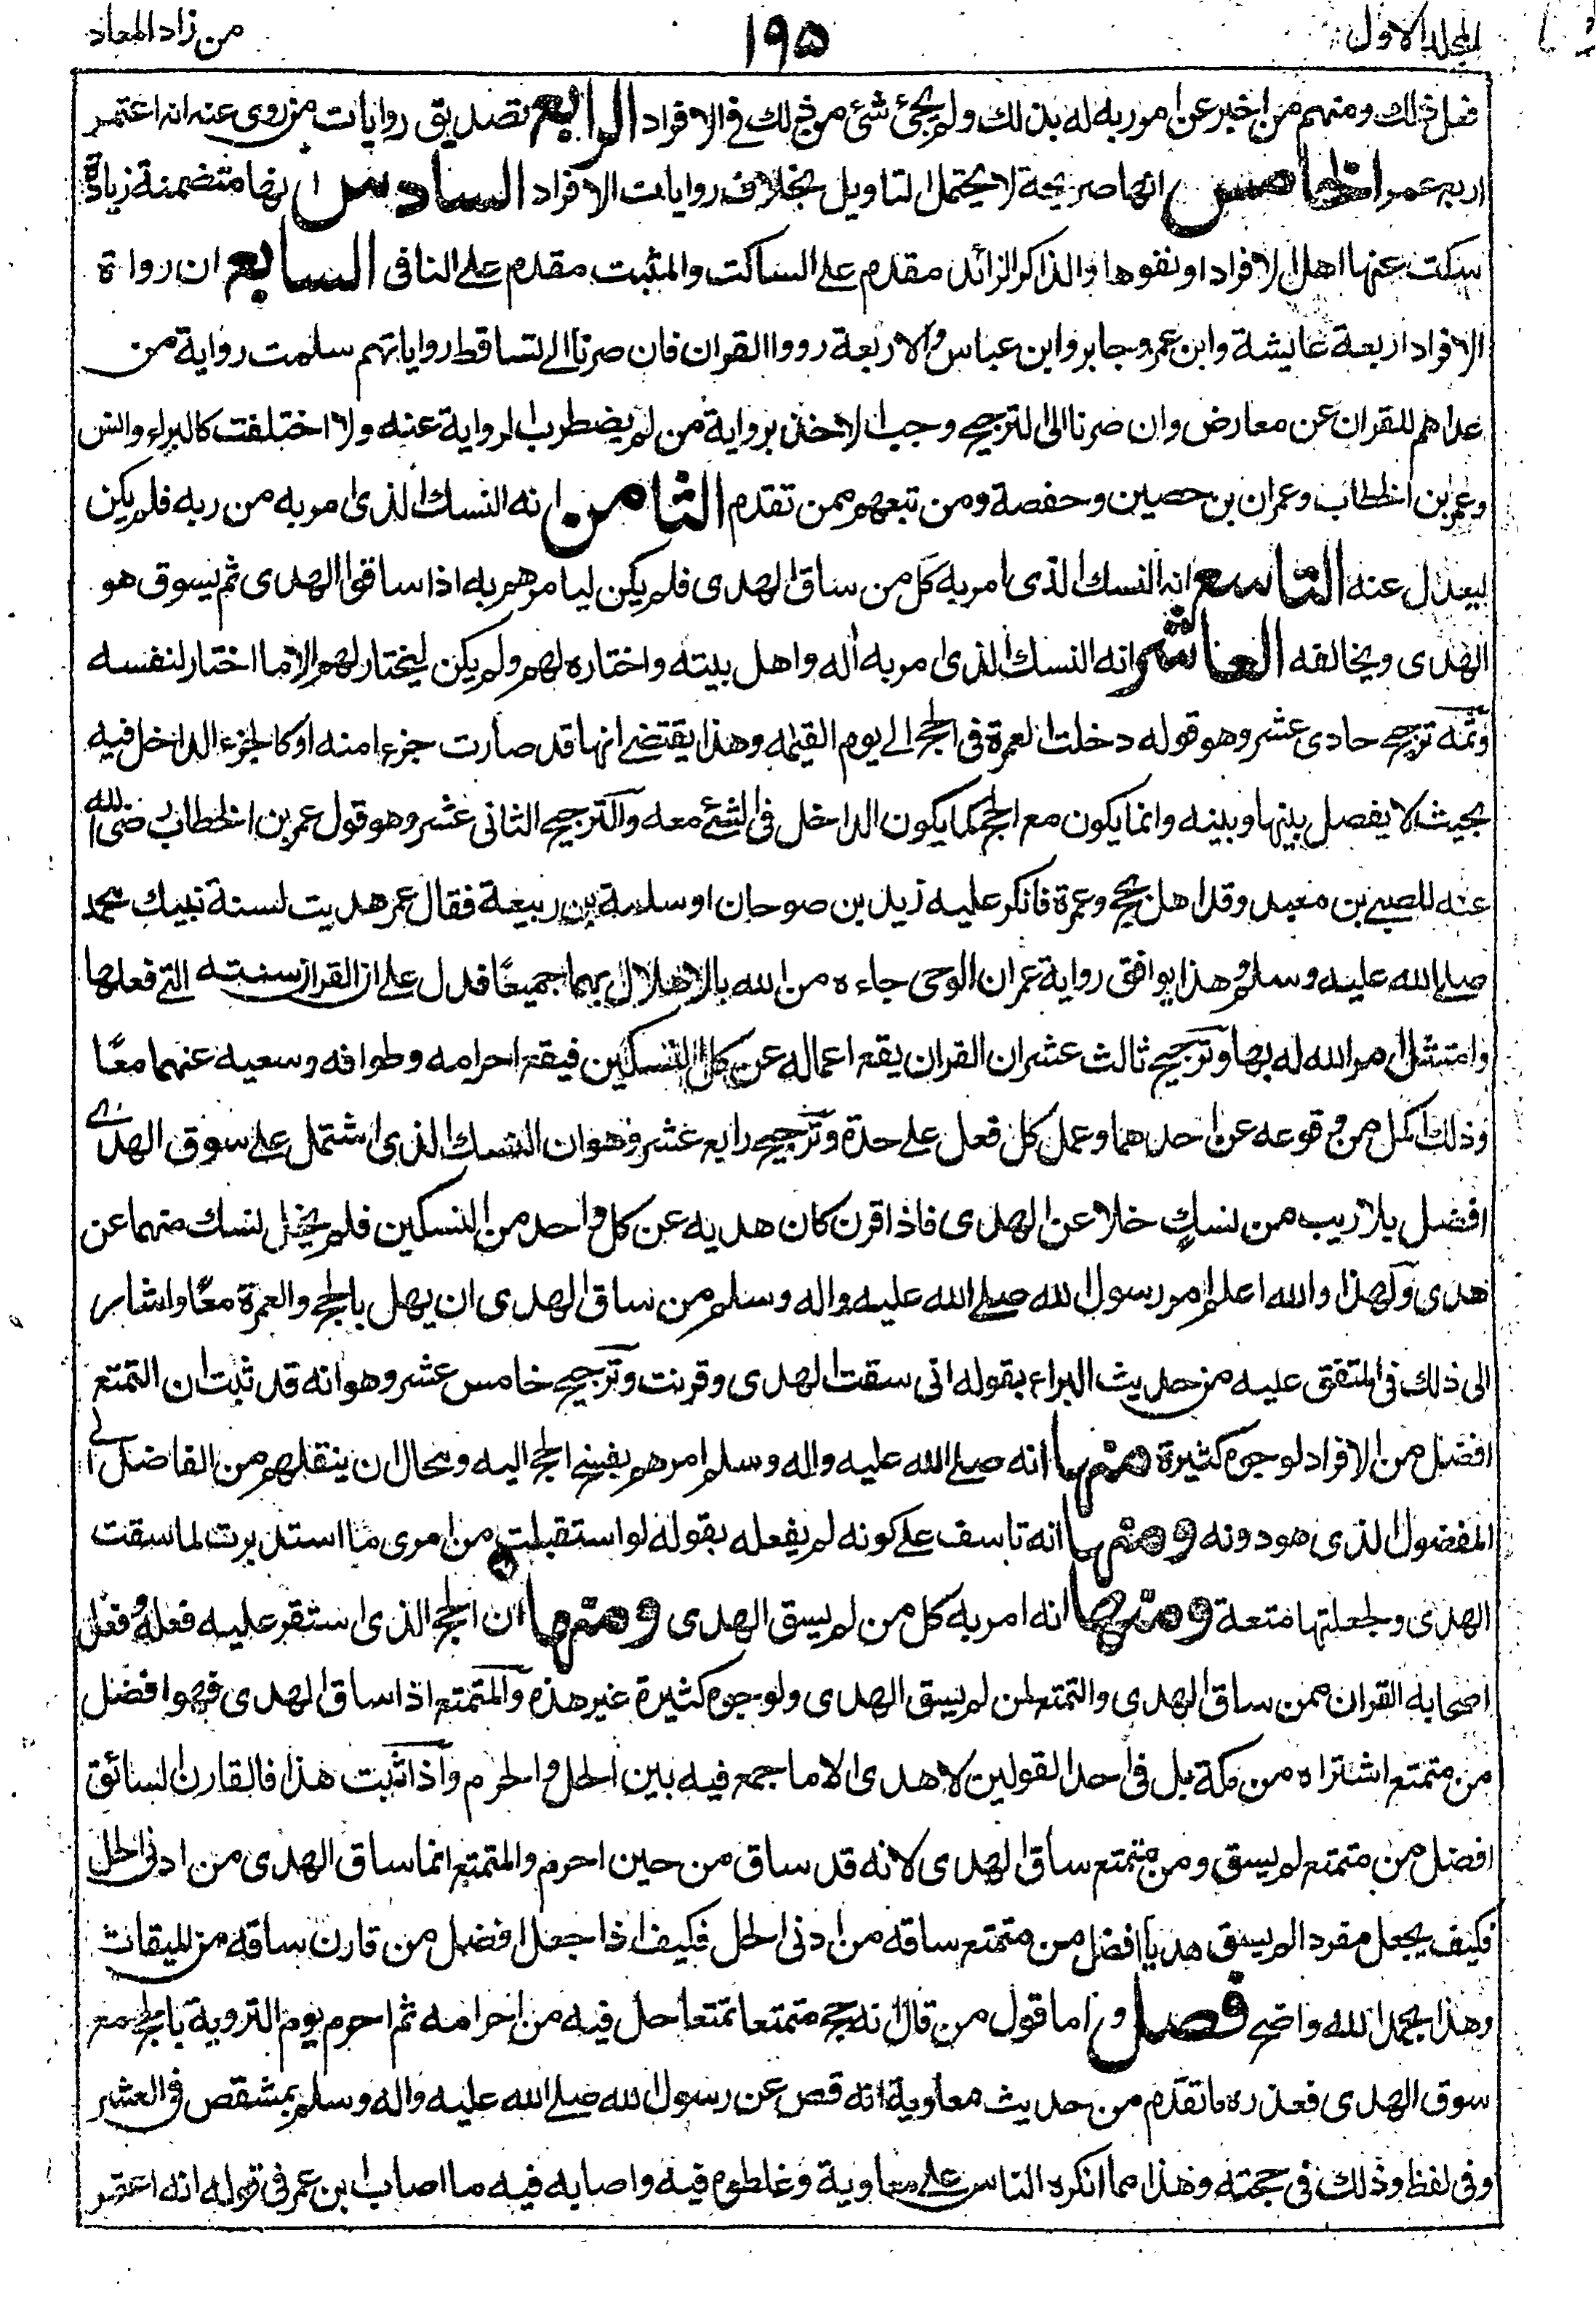 المجلد الاول
١٩٥
من زاد المعاد
فعل ذلك ومنهم من اخبر عن امر ربه له بذلك ولم يجئ شئ من ذلك في الافراد الرابع تصديق روايات من روى عنه انه اعتمر
اربع عمر الخامس انها صريحة لا يحتمل التاويل بخلاف روايات الافراد السادس انها متضمنة زيادة
سكت عنها اهل الافراد او نفوها والذاكر الزائد مقدم على الساكت والمثبت مقدم على النافى السابع ان رواة
الافراد اربعة عايشة وابن عمر وجابر وابن عباس والاربعة رووا القران فان صرنا الى تساقط رواياتهم سلمت رواية من
عداهم للقران عن معارض وان صرنا الى الترجيح وجب الاخذ برواية من لم يضطرب الرواية عنه ولا اختلفت كالبراء وانس
وعمر بن الخطاب وعمران بن حصين وحفصة ومن تبعهم ممن تقدم الثامن انه النسك الذى امر به من ربه فلم يكن
ليعدل عنه التاسع انه النسك الذى امر به كل من ساق الهدى فلم يكن ليامرهم به اذا ساقوا الهدى ثم يسوق هو
الهدى ويخالفه العاشر انه النسك الذى امر به اله واهل بيته واختاره لهم ولم يكن ليختار لهم الا ما اختار لنفسه
وثمه ترجيح حادى عشر وهو قوله دخلت العمرة فى الحج الى يوم القيمه وهذا يقتضے انها قد صارت جزءا منه او كالجزء الداخل فيه
بحيث لا يفصل بينها وبينه وانما يكون مع الحج كما يكون الداخل فى الشئ معه والترجيح الثانى عشر وهو قول عمر بن الخطاب رضى الله
عنه للصبے بن معبد وقد اهل بحج وعمرة فانكر عليه زيد بن صوحان او سلمة بن ربيعة فقال عمر هديت لسنة نبيك محمد
صلے الله عليه وسلم وهذا يوافق رواية عمر ان الوحى جاءه من الله بالاهلال بهما جميعًا فدل على ان القران سنته التے فعلها
وامتثل امر الله له بها وترجيح ثالث عشر ان القران يقع اعماله عن كل النسكين فيقع احرامه وطوافه وسعيه عنهما معًا
وذلك اكمل من وقوعه عن احدهما وعمل كل فعل على حدة وترجيح رابع عشر وهو ان النسك الذى اشتمل على سوق الهدے
افضل بلا ريب من نسكٍ خلا عن الهدى فاذا قرن كان هديه عن كل واحد من النسكين فلم يخل نسك منهما عن
هدى ولهذا والله اعلم امر رسول الله صلے الله عليه واله وسلم من ساق الهدى ان يهل بالحج والعمرة معًا واشار
الى ذلك فى المتفق عليه من حديث البراء بقوله انى سقت الهدى وقرنت وترجيح خامس عشر وهو انه قد ثبت ان التمتع
افضل من الافراد لوجوه كثيرة منها انه صلے الله عليه واله وسلم امرهم بفسخ الحج اليه ومحال ان ينقلهم من الفاضل الے
المفضول الذى هو دونه ومنها انه تاسف على كونه لم يفعله بقوله لو استقبلت من امرى ما استدبرت لما سقت
الهدى ولجعلتها متعة ومنها انه امر به كل من لم يسق الهدى ومنها ان الحج الذى استقر عليه فعله وفعل
اصحابه القران ممن ساق الهدى والتمتع لمن لم يسق الهدى ولوجوه كثيرة غير هذه والمتمتع اذا ساق الهدى فهو افضل
من متمتع اشتراه من مكة بل فى احد القولين لا هدى الا ما جمع فيه بين الحل والحرم واذا ثبت هذا فالقارن السائق
افضل من متمتع لم يسق ومن متمتع ساق الهدى لانه قد ساق من حين احرم والمتمتع انما ساق الهدى من ادنى الحل
فكيف يجعل مفرد الم يسق هديا افضل من متمتع ساقه من ادنى الحل فكيف اذا جعل افضل من قارن ساقه من الميقات
وهذا بحمد الله واضح فصل واما قول من قال انه حج متمتعا تمتعا حل فيه من احرامه ثم احرم يوم التروية بالحج مع
سوق الهدى فعذره ما تقدم من حديث معاوية انه قص عن رسول الله صلے الله عليه واله وسلم بمشقص فى العشر
وفى لفظ وذلك فى حجته وهذا مما انكره الناس على معاوية وغلطوه فيه واصابه فيه ما اصاب ابن عمر فى قوله انه اعتمر